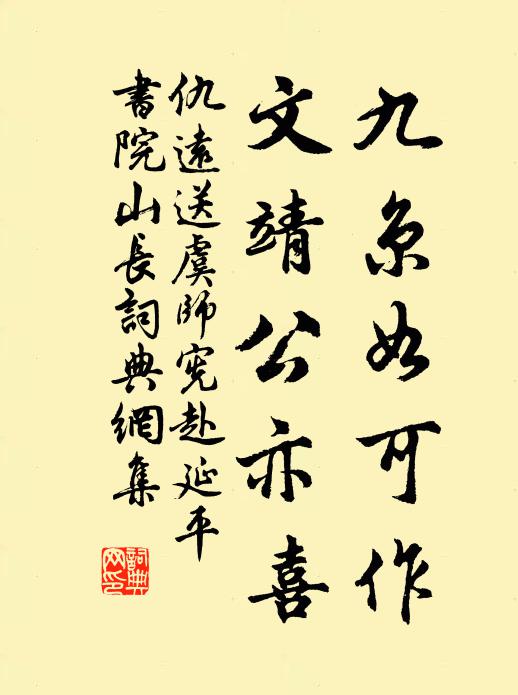 九京如可作
文靖公亦喜
仇遠送虞師憲赴延平
書院山長詞典網集
詞典
网印